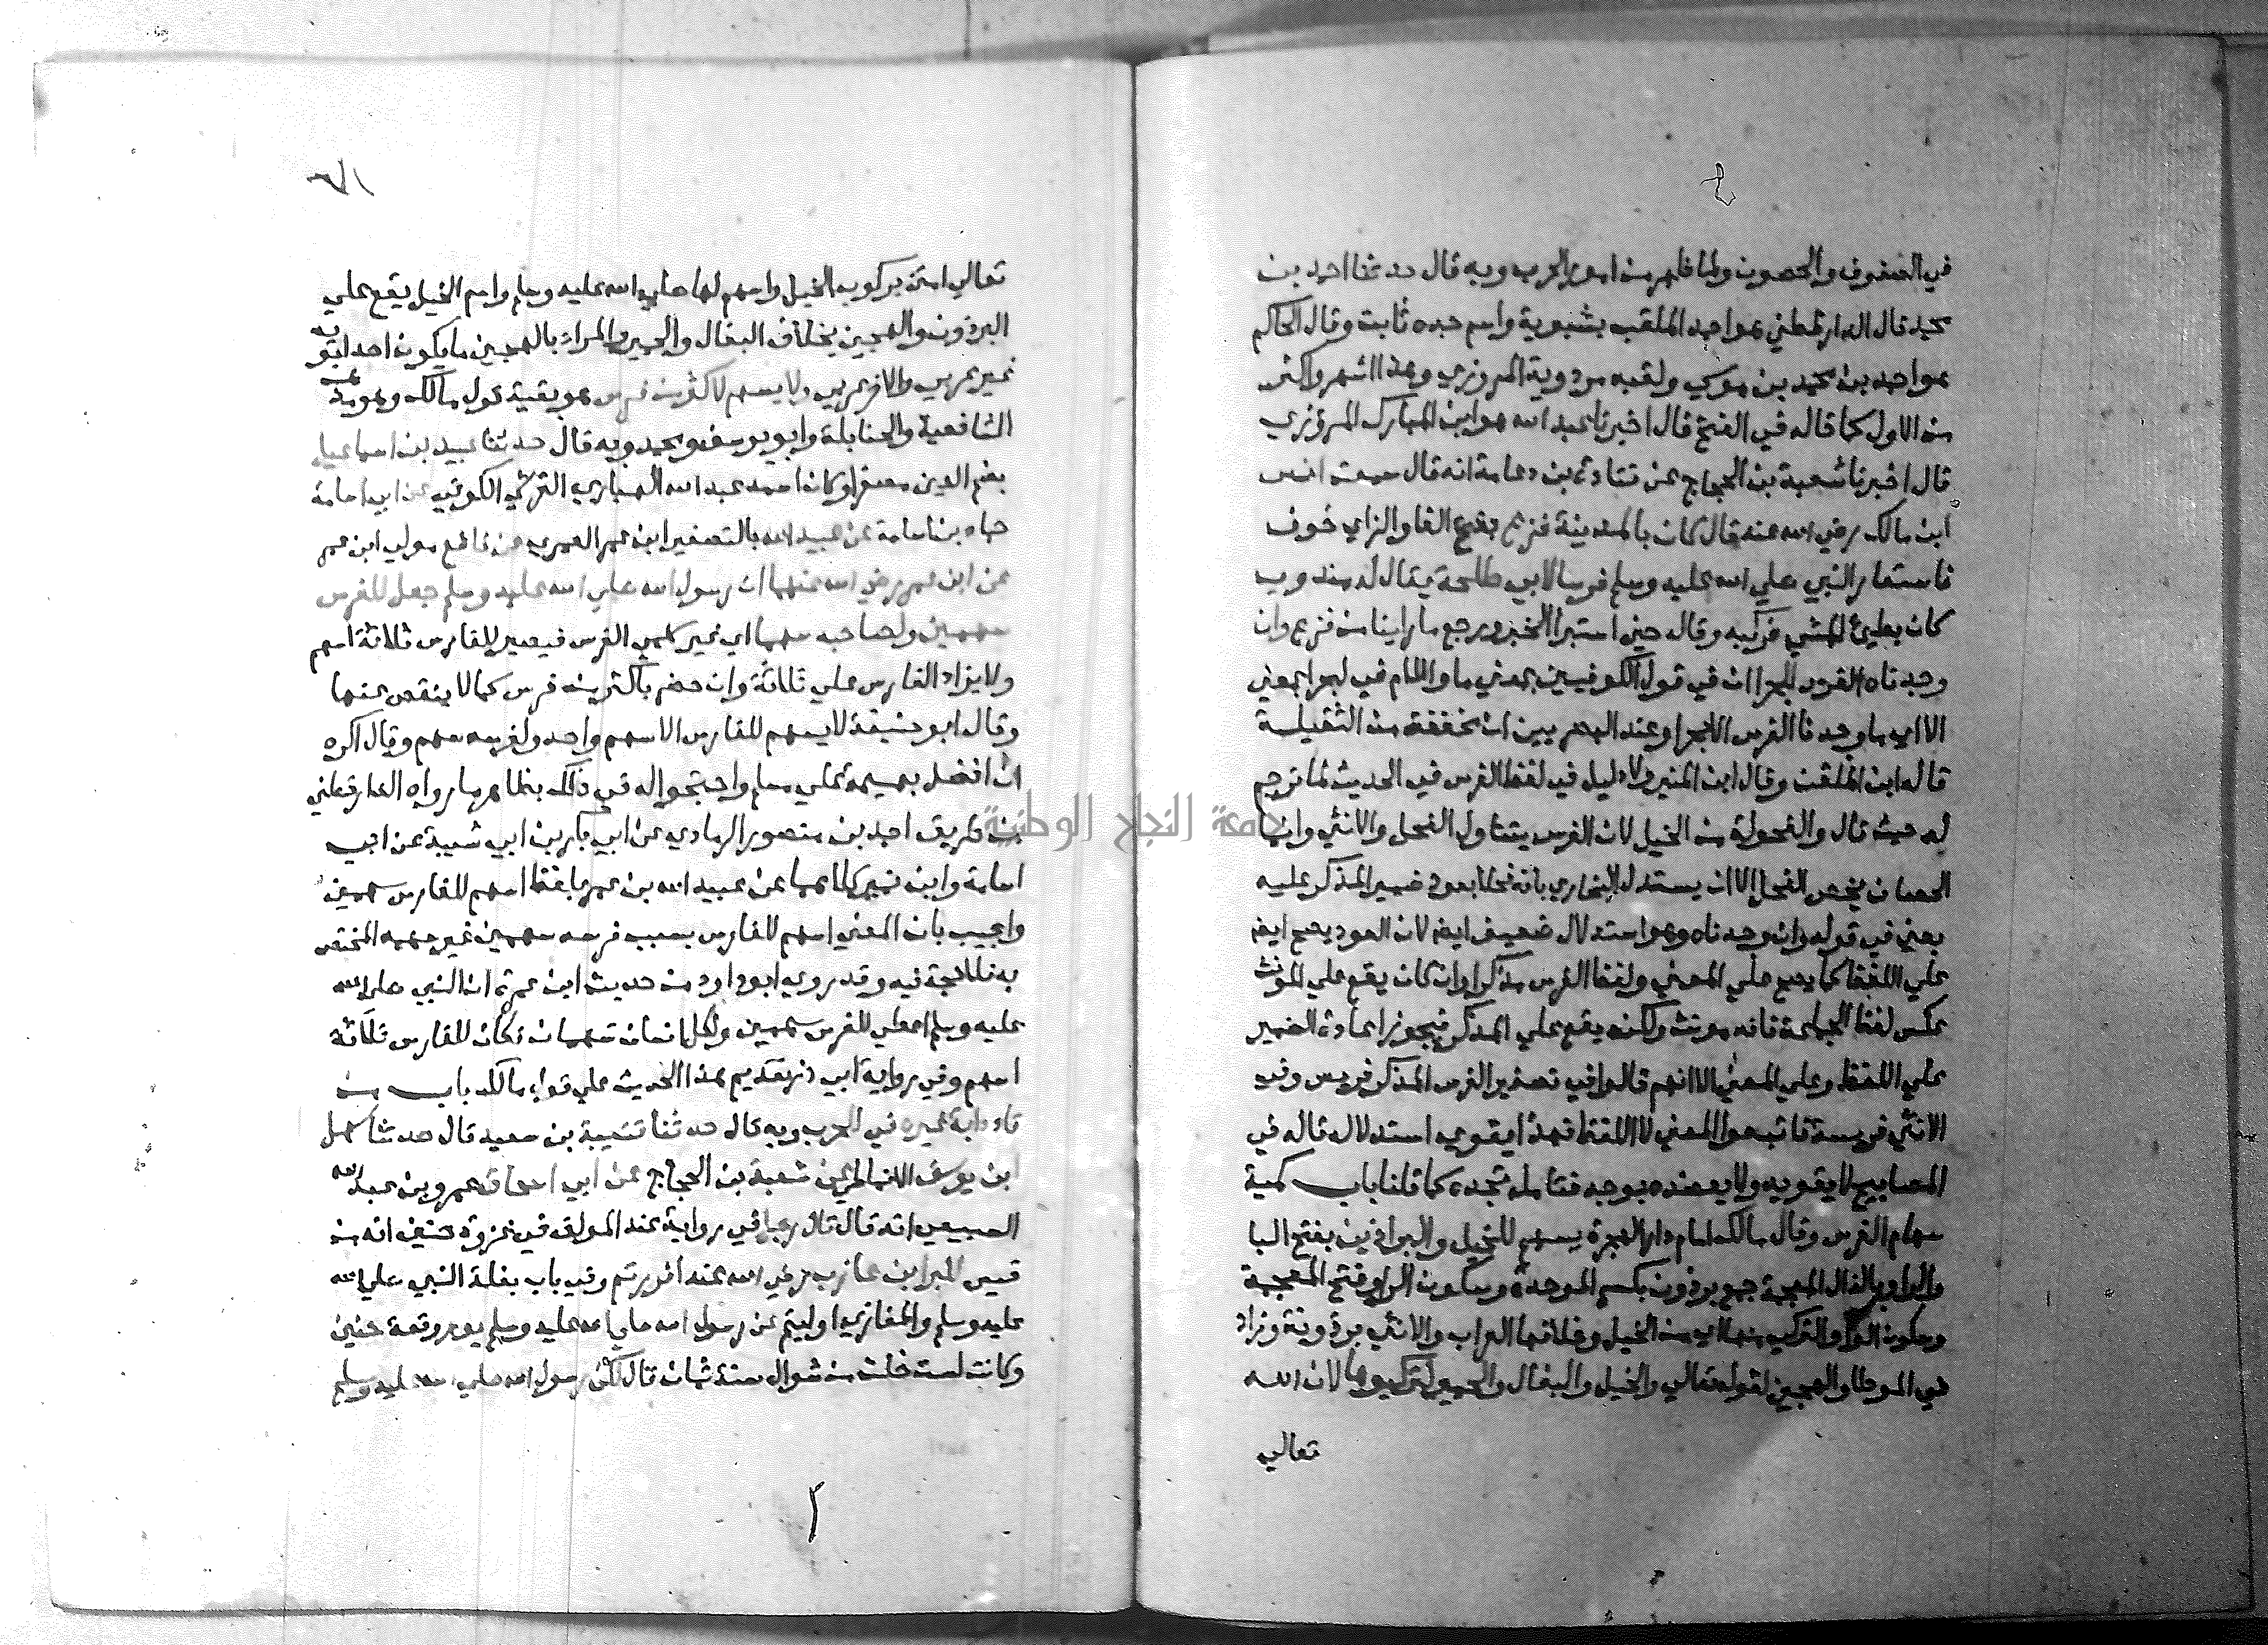 في الصفوف والحصون ولما ظهر من امور الحرب وبه قال حدثنا احمد بن
محمد قال الدارقطني هو احمد الملقب بشبوية واسم جده ثابت وقال الحاكم
هو احمد بن محمد بن موسي ولقبه مردوية المروزي وهذا اشهر واكثر
من الاول كما قاله في الفتح قال اخبرنا عبد الله هو ابن المبارك المروزي
قال اخبرنا شعبة بن الحجاج عن قتادة بن دعامة انه قال سمعت انس
ابن مالك رضي الله عنه قال كان بالمدينة فزع بفتح الفا والزاي خوف
فاستعار النبي صلي الله عليه وسلم فرسا لابي طلحة يقال له مندوب
كان بطيئ المشي فركبه وقال حين استبرا الخبر ورجع ما راينا من فزع وان
وجدناه الفرس لبحرا ان في قول الكوفيين بمعني ما واللام في لبحرا بمعني
الا اي ما وجدنا الفرس الا بحرا وعند البصريين ان مخففة من الثقيلة
قاله ابن الملقن وقال ابن المنير ولا دليل في لفظ الفرس في الحديث لما ترجم
له حيث قال والفحولة من الخيل لان الفرس يتناول الفحل والانثي وانما
الحصان يخص الفحل الا ان يستدل البخاري بانه فحل بعود ضمير المذكر عليه
يعني في قوله وان وجدناه وهو استدلال ضعيف ايضا لان العود يصح ايضا
علي اللفظ كما يصح علي المعني ولفظ الفرس مذكر وان كان يقع علي المونث
عكس لفظ الجماعة فانه مونث ولكنه يقع علي المذكر فيجوز اعادة الضمير
علي اللفظ وعلي المعني الا انهم قالوا في تصغير الفرس المذكر فريس وفي
الانثي فريسة فاتبعوا المعني لا اللفظ فهذا يقوي استدلاله قال في
المصابيح لا يقويه ولا يعضده بوجه فتامله تجده كما قلنا باب كمية
سهام الفرس وقال مالك امام دار الهجرة يسهم للخيل والبراذين بفتح البا
والرا وبالذال المعجمة جمع برذون بكسر الموحدة وسكون الرا وفتح المعجمة
وسكون الواو التركي منها اي من الخيل وخلافها العراب والانثي برذونة وزاد
في الموطا والهجين لقوله تعالي والخيل والبغال والحمير لتركبوها لان الله
تعالي
تعالي امتن بركوب الخيل واسهم لها صلي الله عليه وسلم واسم الخيل يقع علي
البرذون والهجين بخلاف البغال والحمير والمراد بالهجين ما يكون احد ابويه
غير عربي والاخر عربي ولا يسهم لاكثر من فرس هو بقية قول مالك وهو مذهب
الشافعية والحنابلة وابو يوسف ومحمد وبه قال حدثنا عبيد بن اسماعيل
بضم العين مصغرا وكان اسمه عبد الله الهباري القرشي الكوفي عن ابي اسامة
حماد بن اسامة عن عبيد الله بالتصغير ابن عمر العمري عن نافع مولي ابن عمر
عن ابن عمر رضي الله عنهما ان رسول الله صلي الله عليه وسلم جعل للفرس
سهمين ولصاحبه سهما اي غير سهمي الفرس فيصير للفارس ثلاثة اسهم
ولا يزاد الفارس علي ثلاثة وان حضر باكثر من فرس كما لا ينقص عنها
وقال ابو حنيفة لا يسهم للفارس الا سهم واحد ولفرسه سهم وقال اكره
ان افضل بهيمة علي مسلم واحتج له في ذلك بظاهر ما رواه الدارقطني
من طريق احمد بن منصور الرمادي عن ابي بكر بن ابي شيبة عن ابي
اسامة وابن نمير كلاهما عن عبيد الله بن عمر بلفظ اسهم للفارس سهمين
واجيب بان المعني اسهم للفارس بسبب فرسه سهمين غير سهمه المختص
به فلا حجة فيه وقد روي ابو داود من حديث ابن عمرة ان النبي صلي الله
عليه وسلم اعطي للفرس سهمين ولكل انسان سهما فكان للفارس ثلاثة
اسهم وفي رواية ابي ذر تقديم هذا الحديث علي قول مالك باب من
قاد دابة غيره في الحرب وبه قال حدثنا قتيبة بن سعيد قال حدثنا سهل
ابن يوسف الانماطي عن شعبة بن الحجاج عن ابي اسحاق عمرو بن عبد الله
السبيعي انه قال قال رجل في رواية عند المولف في غزوة حنين انه من
قيس للبرا بن عازب رضي الله عنه افررتم وفي باب بغلة النبي صلي الله
عليه وسلم والمغازي اوليتم عن رسول الله صلي الله عليه وسلم يوم وقعة حنين
وكانت لست خلت من شوال سنة ثمان قال لكن رسول الله صلي الله عليه وسلم
جامعة النجاح الوطنية